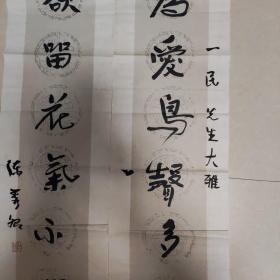 一民先生大雅
為愛鳥聲多
欲留花氣不